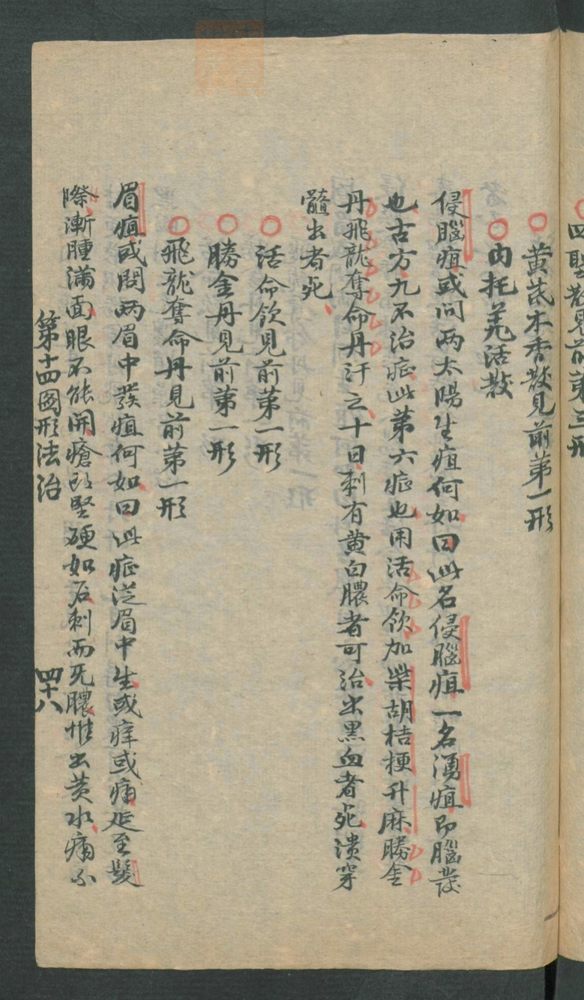 黄芪木香散見前第一形
内托羌活散
侵腦疽或问两太陽生疽何如曰此名侵腦疽一名湧疽即腦發
也古方九不治症此第六症也用活命飲加柴胡桔梗升麻勝金
丹飛龍奪命丹汗之十日刺有黄白膿者可治出黑血者死潰穿
髓出者死
活命飲見前第一形
勝金丹見前第一形
飛龍奪命丹見前第一形
眉疽或問两眉中發疽何如曰此症從眉中生或痒或痛延至髮
際漸腫滿面眼不能開瘡頭堅硬如石刺而无膿惟出黄水痛不
第十四圖形法治
四十八